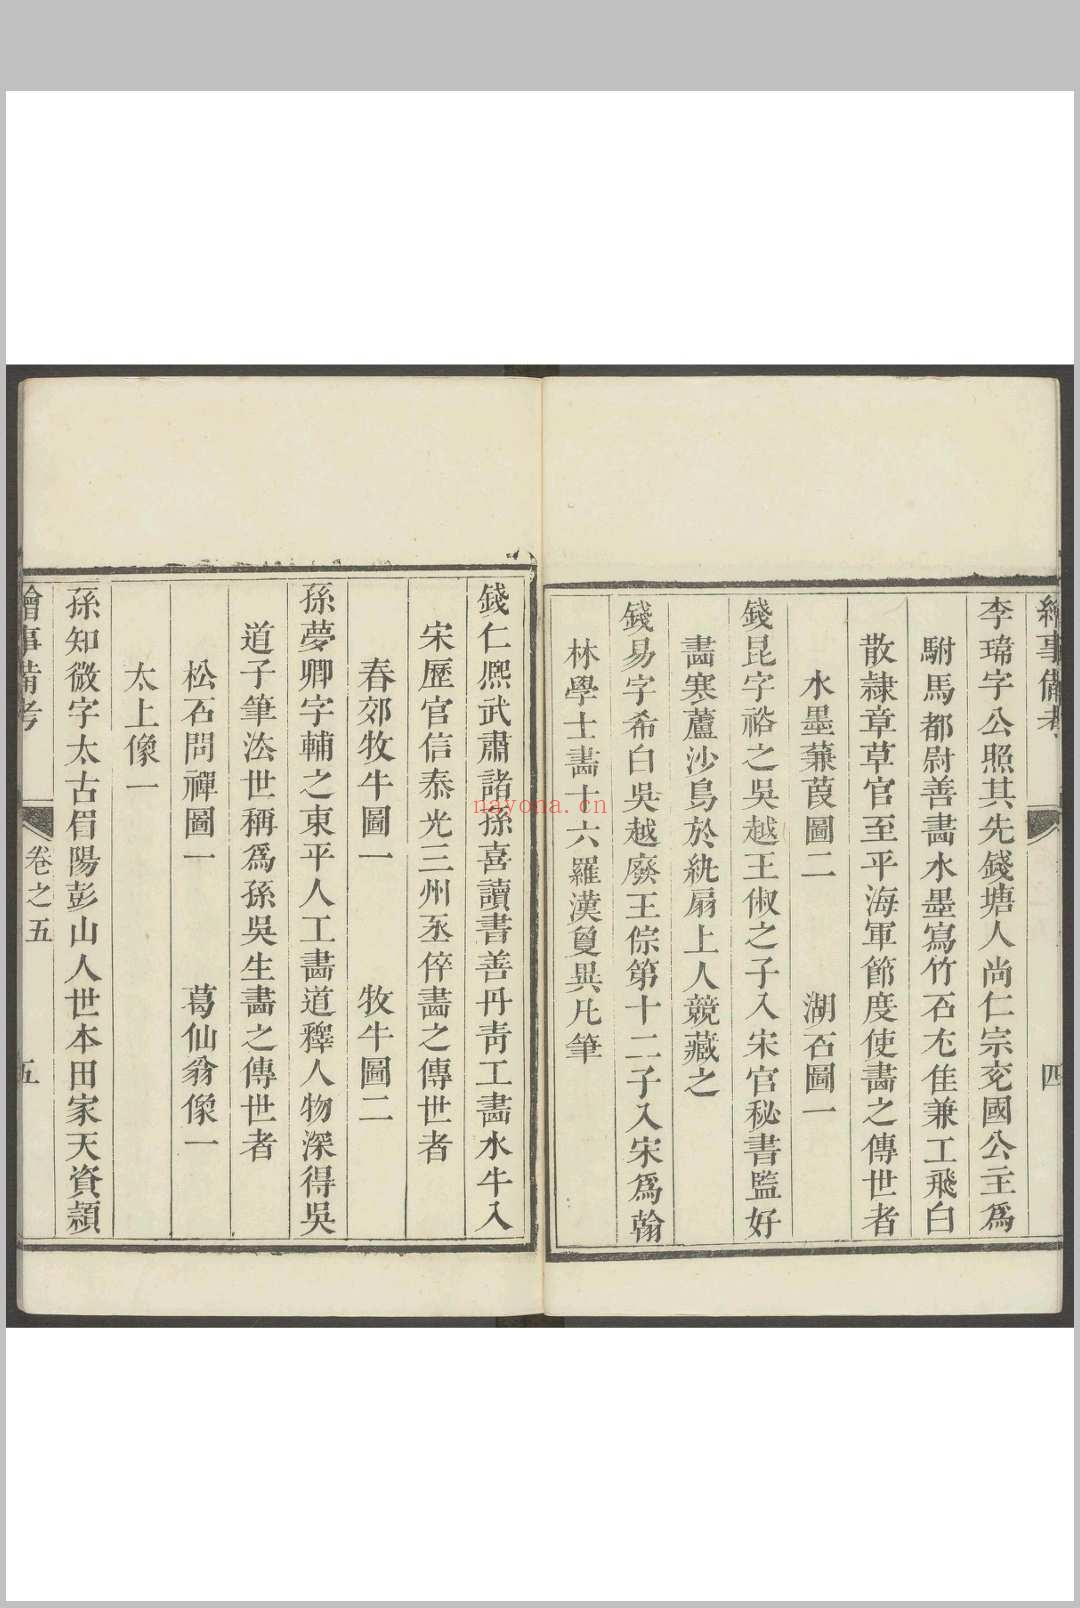 繪事備考
四
李瑋字公照其先錢塘人尚仁宗兗國公主爲
駙馬都尉善畵水墨寫竹石尤佳兼工飛白
散隷章草官至平海軍節度使畵之傳世者
水墨蒹葭圖二 湖石圖一
錢昆字裕之吳越王俶之子入宋官秘書監好
畵寒蘆沙鳥於紈扇上人競藏之
錢易字希白吳越廢王倧第十二子入宋爲翰
林學士畵十六羅漢敻異凡筆
錢仁熈武肅諸孫喜讀書善丹靑工畵水牛入
宋歷官信泰光三州丞倅畵之傳世者
春郊牧牛圖一 牧牛圖二
孫夢卿字輔之東平人工畵道釋人物深得吳
道子筆法世稱爲孫吳生畵之傳世者
松石問禪圖一 葛仙翁像一
太上像一
孫知微字太古眉陽彭山人世本田家天資頴
繪事備考
卷之五
五
nayona.cn